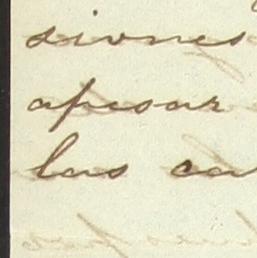 siones
apesar
las ca